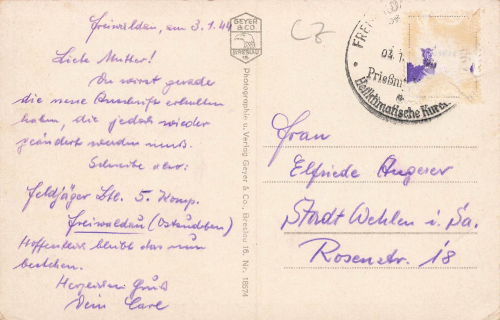 Freiwaldau, am 3.1.44
Liebe Mutter!
Du wirst gerade
die neue Anschrift erhalten
haben, die jedoch wieder
geändert werden muß.
Schreibe also:
Feldjäger Btl. 5. Komp.
Freiwaldau (Ostsudeten)
Hoffentlich bleibt das nun
bestehen.
Herzlichen Gruß
Dein
GEYER
& CO.
BRESLAU
16
Photographie u. Verlag Geyer & Co., Breslau 16, Nr. 18574
CZ
FREI
Prießn
Heilklimatische Kuro
Frau
Elfriede Angerer
Stadt Wehlen i. Sa.
Rosenstr. 18